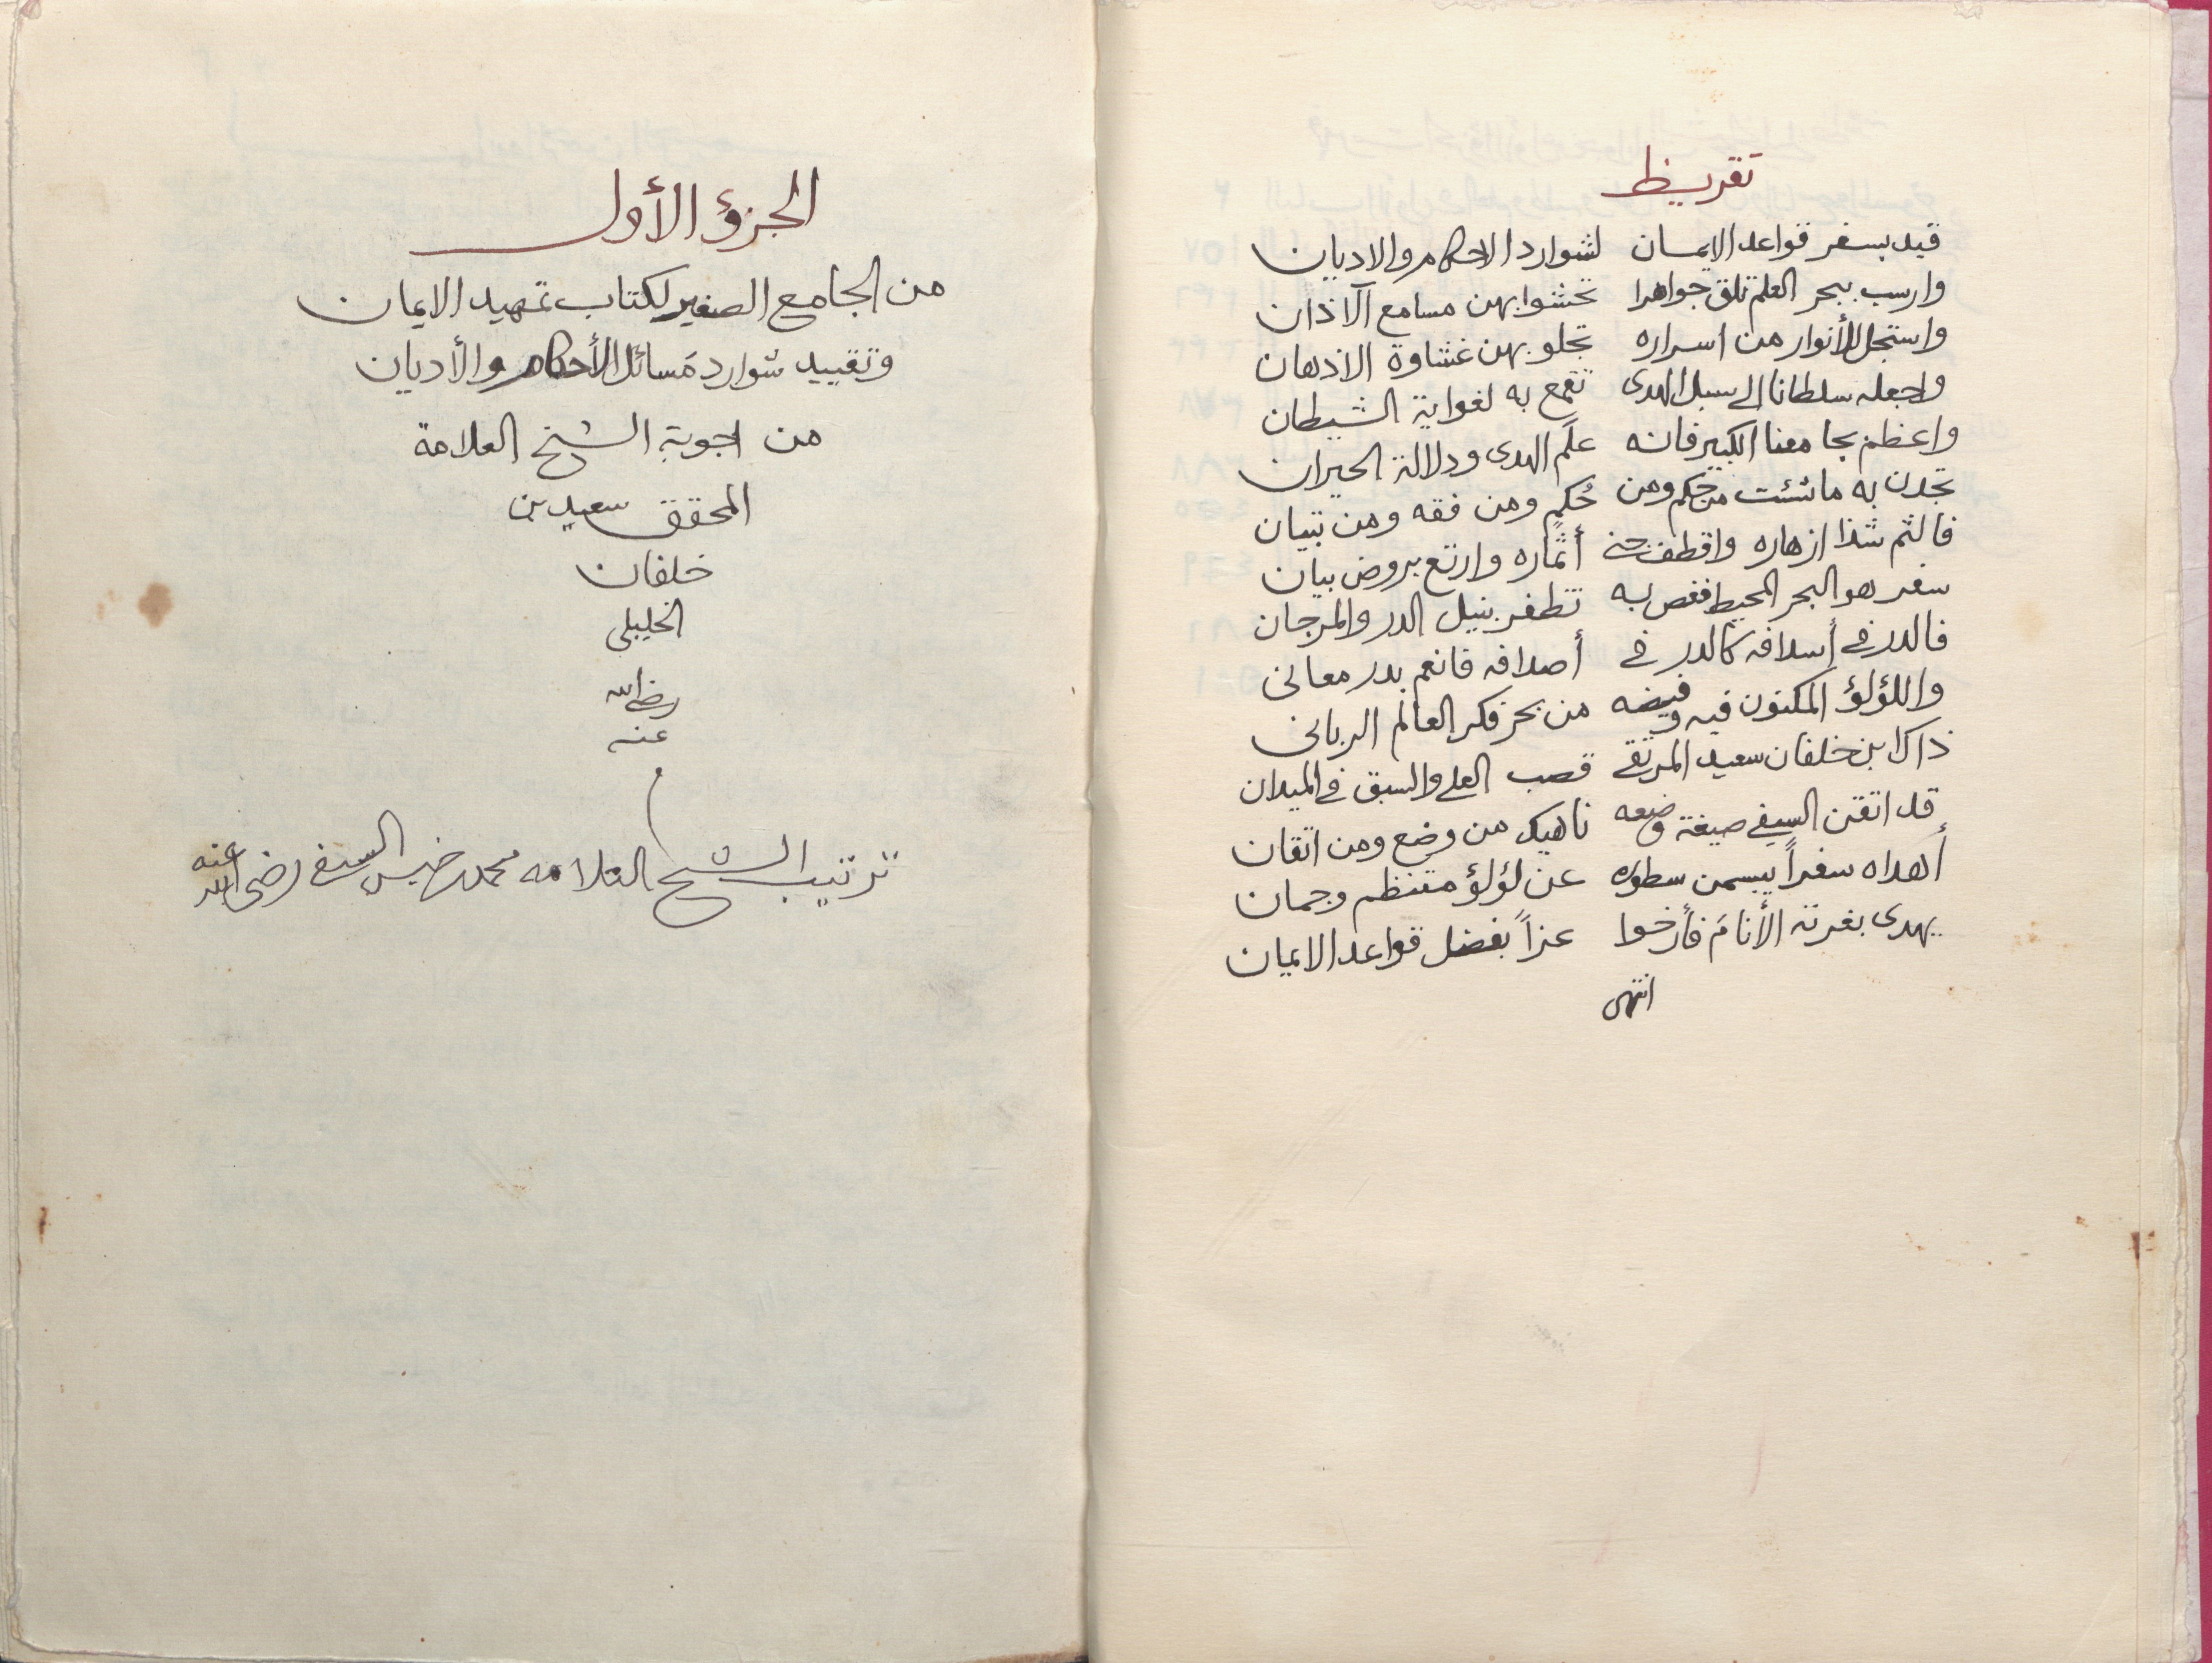 تقريظ
قيد بسفر قواعد الايمان لشوارد الاحكام والاديان
وارسب ببحر العلم تلق جواهرا تحشوا بهن مسامع الآذان
واستجل للأنوار من اسراره تجلو بهن غشاوة الاذهان
واجعله سلطانا إلى سبل الهدى تقمع به لغواية الشيطان
واعظم بجامعنا الكبير فانه علم الهدى ودلالة الحيران
تجدن به ما شئت من حكم ومن حُكمٍ ومن فقه ومن تبيان
فالثم شذا ازهاره واقطف جنى أثماره وارتع بروض بيان
سفر هو البحر المحيط فغص به تظفر بنيل الدر والمرجان
فالدر في أسلافه كالدر في أصدافه فانعم بدر معانى
واللؤلؤ المكنون فيه وفيضه من بحر فكر العالم الربانى
ذاك ابن خلفان سعيد المرتقى قصب العلى والسبق في الميدان
قد اتقن السيفي صيغة وضعه ناهيك من وضع ومن اتقان
أهداه سفراً يبسمن سطوره عن لؤلؤ منتظم وجمان
يهدى بغرته الأنامَ فأرخوا عزاً بفضل قواعد الايمان
انتهى
الجزؤ الأول
من الجامع الصغير لكتاب تمهيد الايمان
وتقييد شوارد مَسائل الأحكام والأديان
من اجوبة الشيخ العلامة
المحقق سعيد بن
خلفان
الخليلى
رضي الله
عنه
ترتيب الشيخ العلامه محمد خميس السيفي رضى الله عنه